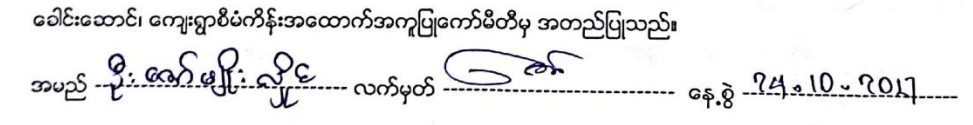 ခေါင်းဆောင်၊ ကျေးရွာစီမံကိန်းအထောက်အကူပြုကော်မီတီမှ အတည်ပြုသည်။
အမည် ဦးဇော်မျိုးလှိုင် လက်မှတ် နေ့စွဲ 24.10.2017